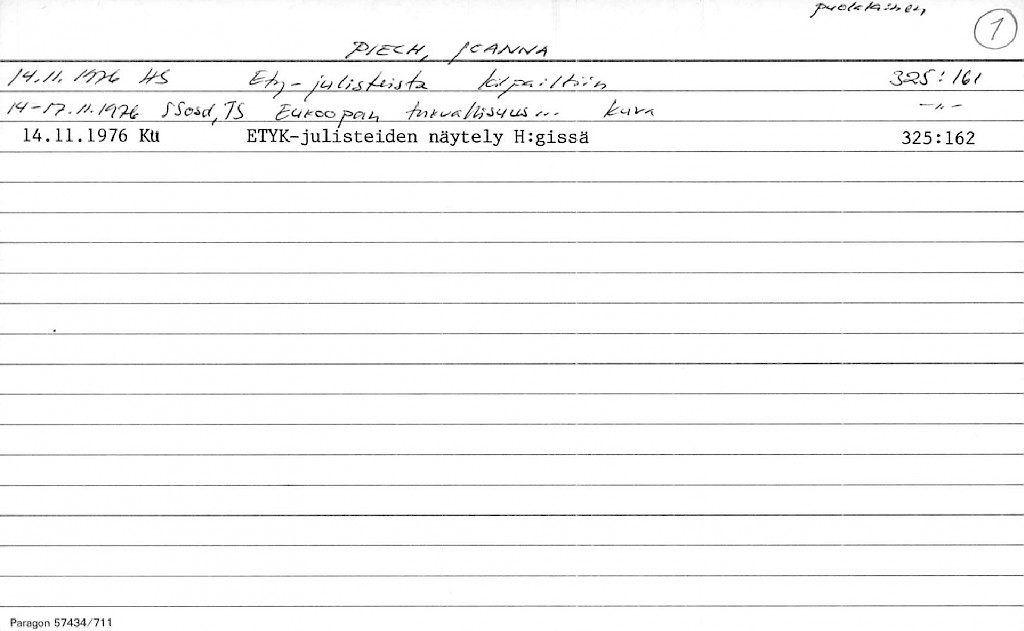 puolalainen
1
PIECH, JOANNA
14.11.1976 HS Ety-julisteista kilpailtiin 325:161
14-17.11.1976 SSosd, TS Euroopan turvallisuus... kuva -"-
14.11.1976 Ku ETYK-julisteiden näytely H:gissä 325:162
Paragon 57434/711